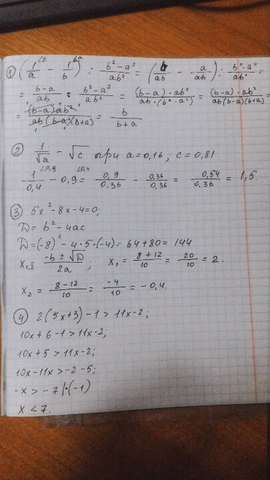 ① (1/a - 1/b) : (b²-a²)/(ab²) = (b/ab - a/ab) : (b²-a²)/(ab²) =
= (b-a)/ab : (b²-a²)/(ab²) = ((b-a)·ab²)/(ab·(b²-a²)) = ((b-a)·ab²)/(ab(b-a)(b+a))
= ((b-a)ab²)/(ab(b-a)(b+a)) = b/(b+a)
② 1/√a - √c при a=0,16; c=0,81
1/0,4 - 0,9 = 0,9/0,36 - 0,36/0,36 = 0,54/0,36 = 1,5
③ 5x²-8x-4=0;
D = b²-4ac
D=(-8)²-4·5·(-4)=64+80=144
x₁,₂ = (-b±√D)/2a, x₁ = (8+12)/10 = 20/10 = 2.
x₂ = (8-12)/10 = -4/10 = -0,4.
④ 2(5x+3)-1>11x-2;
10x+6-1>11x-2;
10x+5>11x-2;
10x-11x>-2-5;
-x>-7|·(-1)
x<7.